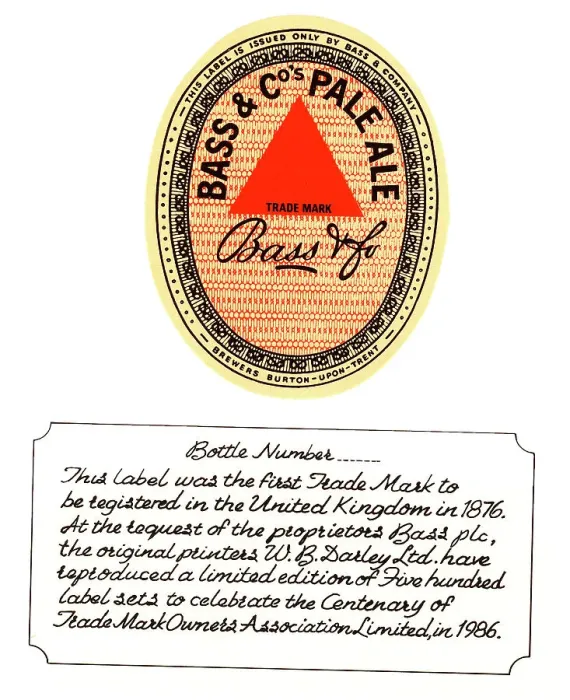 — THIS LABEL IS ISSUED ONLY BY BASS & COMPANY —
BASS & CO'S PALE ALE
TRADE MARK
Bass & Co
— BREWERS BURTON-UPON-TRENT —
Bottle Number _______
This label was the first Trade Mark to
be registered in the United Kingdom in 1876.
At the request of the proprietors Bass plc,
the original printers W. B. Darley Ltd. have
reproduced a limited edition of Five hundred
label sets to celebrate the Centenary of
Trade Mark Owners Association Limited, in 1986.